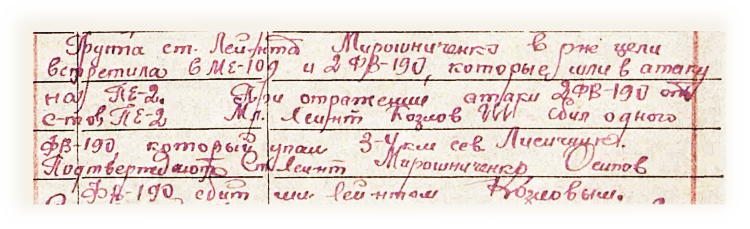 Группа ст. Лей-нта Мирошниченко в р-не цели
встретила 8 МЕ-109 и 2 ФВ-190, которые шли в атаку
на ПЕ-2. При отражении атаки 2 ФВ-190 от
с-тов ПЕ-2 Мл. Леи-нт Козлов сбил одного
ФВ-190 который упал 3-4 км сев. Лисичук.
Подтверждают Ст Леи-нт Мирошниченко Осипов
ФВ-190 сбит мл лей-нтом Козловым.